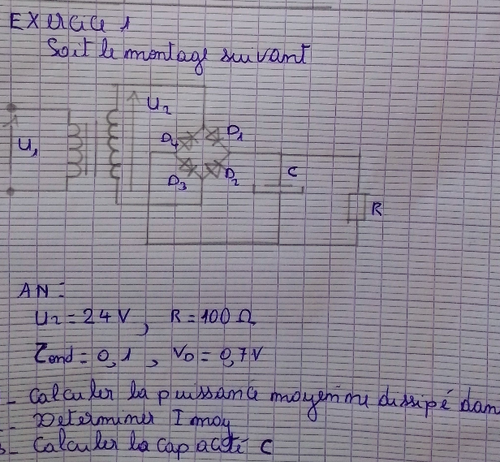 EXercice 1
Soit le montage suivant
U1
U2
D4
D1
D3
D2
C
R
AN:
U2 = 24 V, R = 100 Ω
τond = 0,1, VD = 0,7 V
- Calculer la puissance moyenne dissipé dan
- Determiner I moy
3- Calculer la capacité C